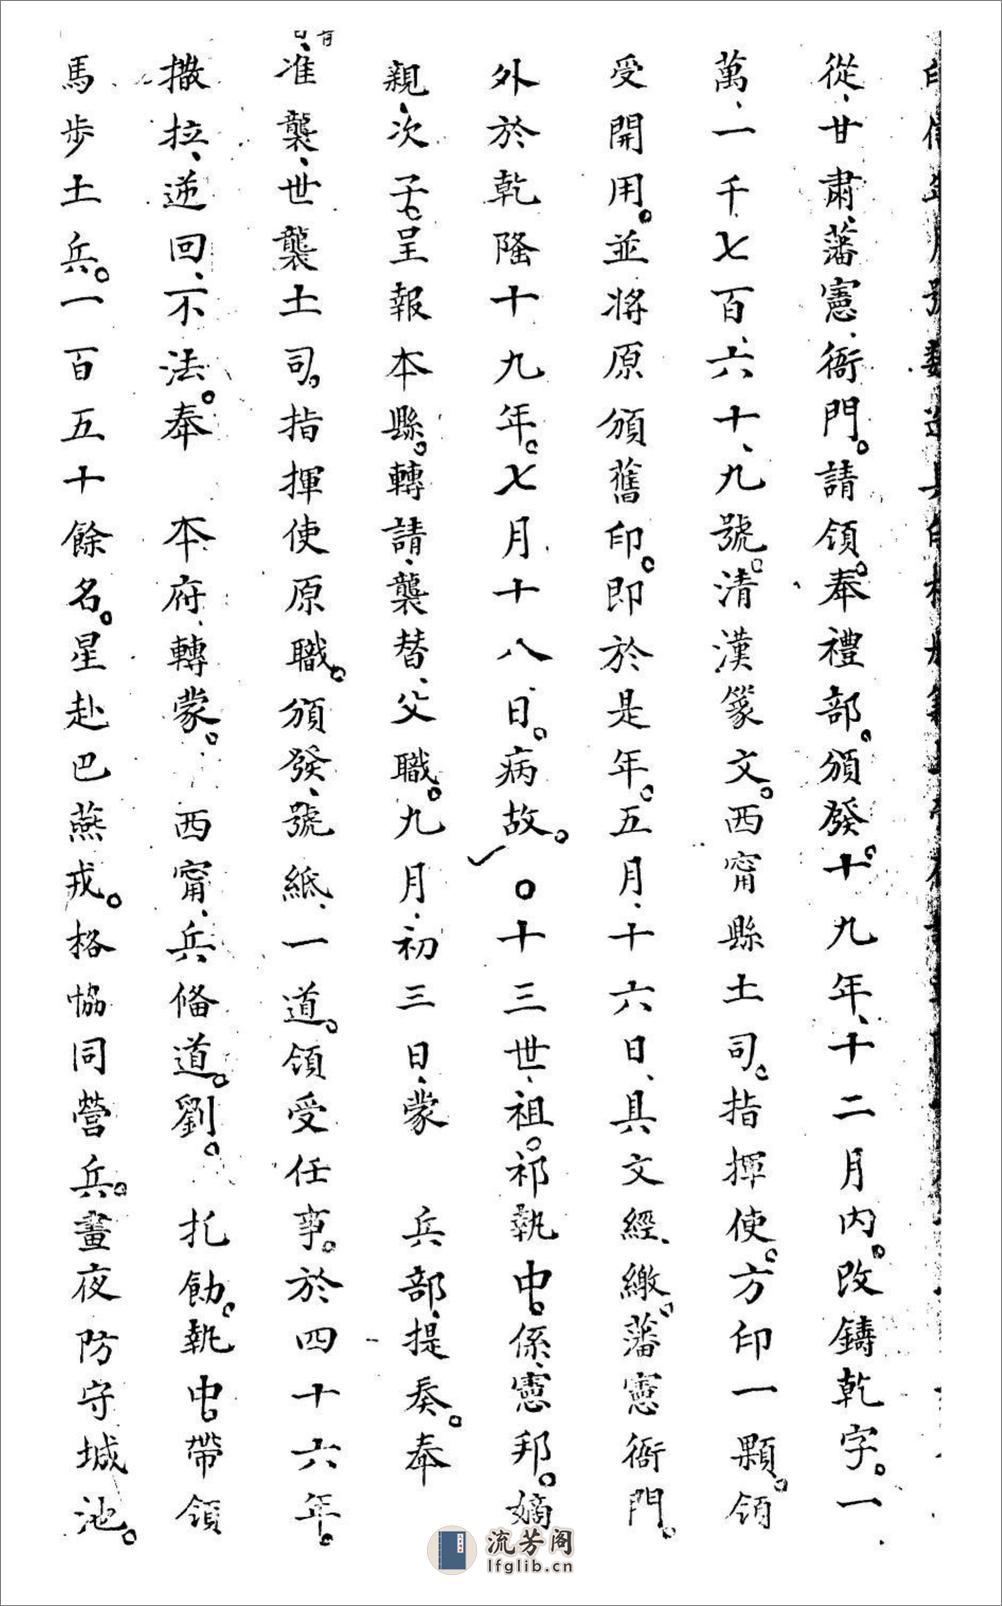 從、甘肅、藩憲、衙門。請領。奉禮部。頒發。十九年、十二月內。改鑄乾字。一
萬、一千七百、六十、九號。清漢篆文。西甯縣土司。指揮使。方印一顆。領
受開用。並将原頒舊印。即於是年。五月、十六日、具文經、繳。藩憲衙門。
外於乾隆十九年。七月十八日。病故。○十三世、祖。祁執中。係、憲邦。嫡
親、次子。呈報本縣。轉請、襲替、父職。九月、初三日、蒙　兵部、提奏。奉
旨、准襲、世襲土司。指揮使原職。頒發、號紙、一道。領受任事。於四十六年。
撒拉、逆回、不法。奉　本府、轉蒙。　西甯、兵俻道。劉。　扎飭。執中帶領
馬步土兵。一百五十餘名。星赴巴燕戎。格恊同營兵。晝夜防守城池。
流芳阁
lfglib.cn